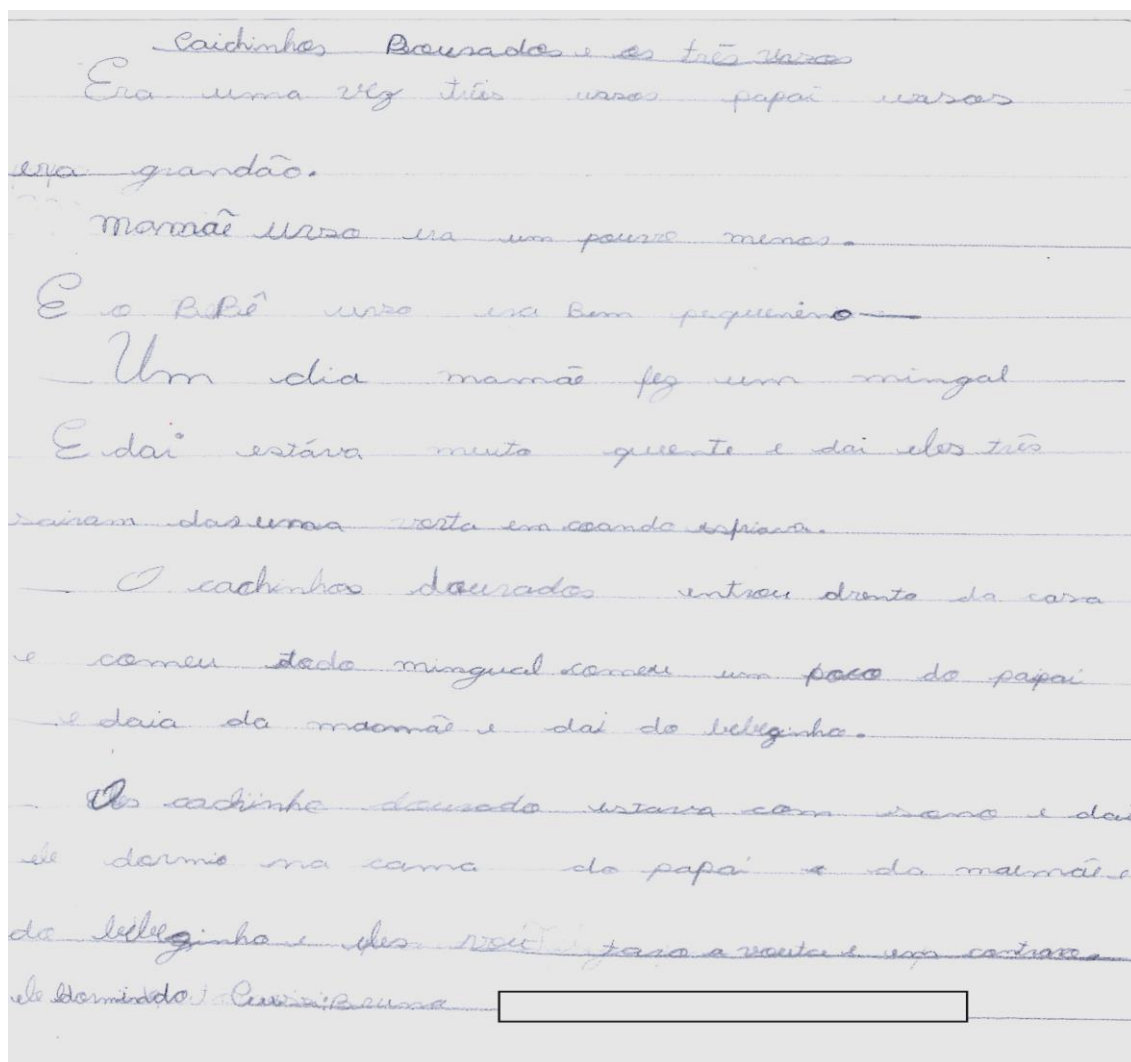 Caichinhos Dourados e os três ursos
Era uma vez três ursos papai ursos
era grandão.
Mamãe urso era um pouco menos.
E o BeBê urso era Bem pequenino
Um dia mamãe fez um mingal
E dai estáva muito quente e dai eles três
sairam das uma vorta em coando esfriava.
O cachinhos dourados entrou drento da casa
e comeu todo mingual comeu um poco do papai
e daia da maomãe e dai do bebeginho.
Os cachinho dourado estava com sono e dai
ele dormio na cama do papai e da mamãe e
do bebeginho e eles
ele dormindo